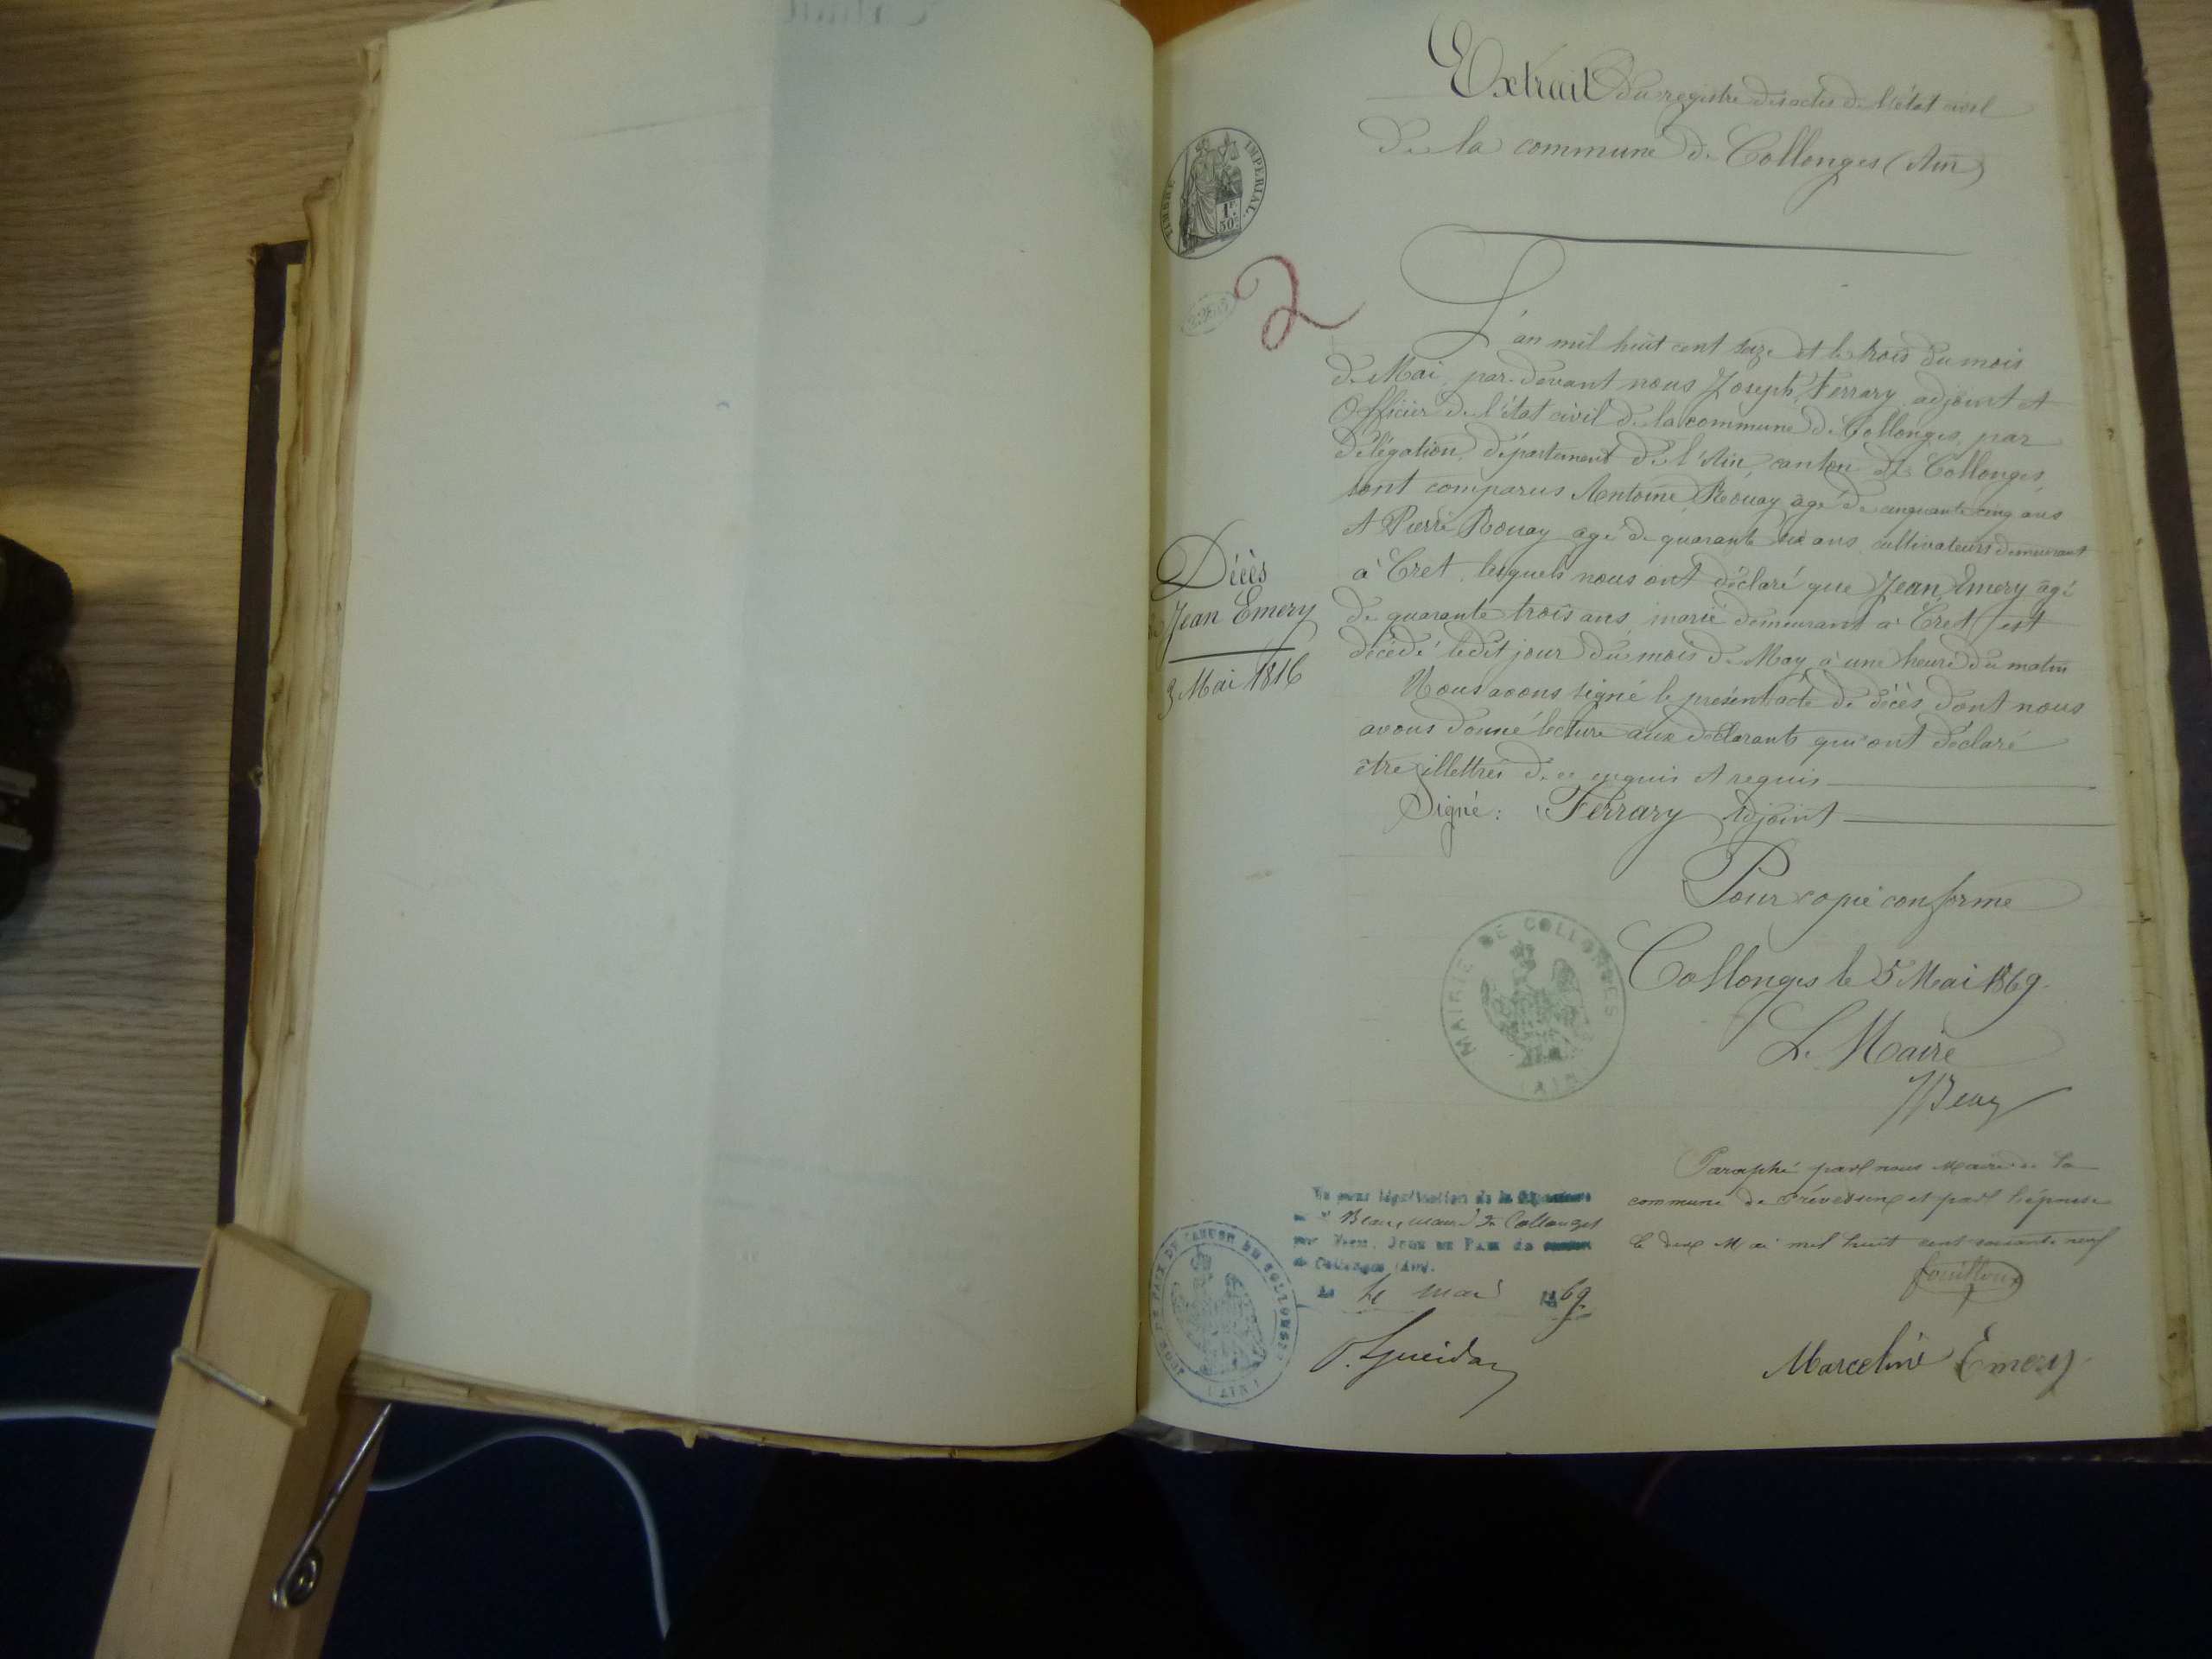 Extrait du registre des actes de l'état civil
de la commune de Collonges (Ain)
TIMBRE IMPERIAL
1F.
50c
2
L'an mil huit cent seize et le trois du mois
de Mai, par-devant nous Joseph Ferrary adjoint et
Officier de l'état civil de la commune de Collonges, par
délégation, département de l'Ain, canton de Collonges,
sont comparus Antoine Rouay agé de cinquante cinq ans
et Pierre Rouay agé de quarante six ans cultivateurs demeurant
à Cret, lesquels nous ont déclaré que Jean Emery agé
de quarante trois ans, marié demeurant à Cret est
décédé ledit jour du mois de May à une heure du matin
Nous avons signé le présent acte de décès dont nous
avons donné lecture aux déclarants qui ont déclaré
être illettrés de ce enquis et requis
Signé: Ferrary Adjoint
Décès
de Jean Emery
3 Mai 1816
Pour copie conforme
Collonges le 5 Mai 1869.
Le Maire
MAIRIE DE COLLONGES
(AIN)
Paraphé par nous Maire de la
commune de et par l'épouse
le dix Mai mil huit cent soixante neuf
Marceline Emery
Vu pour légalisation de la signature
Maire de Collonges
par Nous, Juge de Paix du canton
de Collonges (Ain).
Le mai 1869
JUGE DE PAIX DU CANTON DE COLLONGES
(AIN)